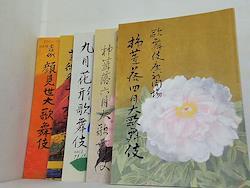 歌舞伎座新開場
杮葺落四月大歌舞伎
杮葺落六月大歌舞伎
九月花形歌舞伎
吉例
顔見世大歌舞伎